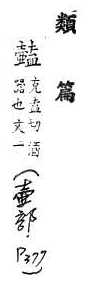 類篇
克盍切酒
器也文一
(壺部 P377)